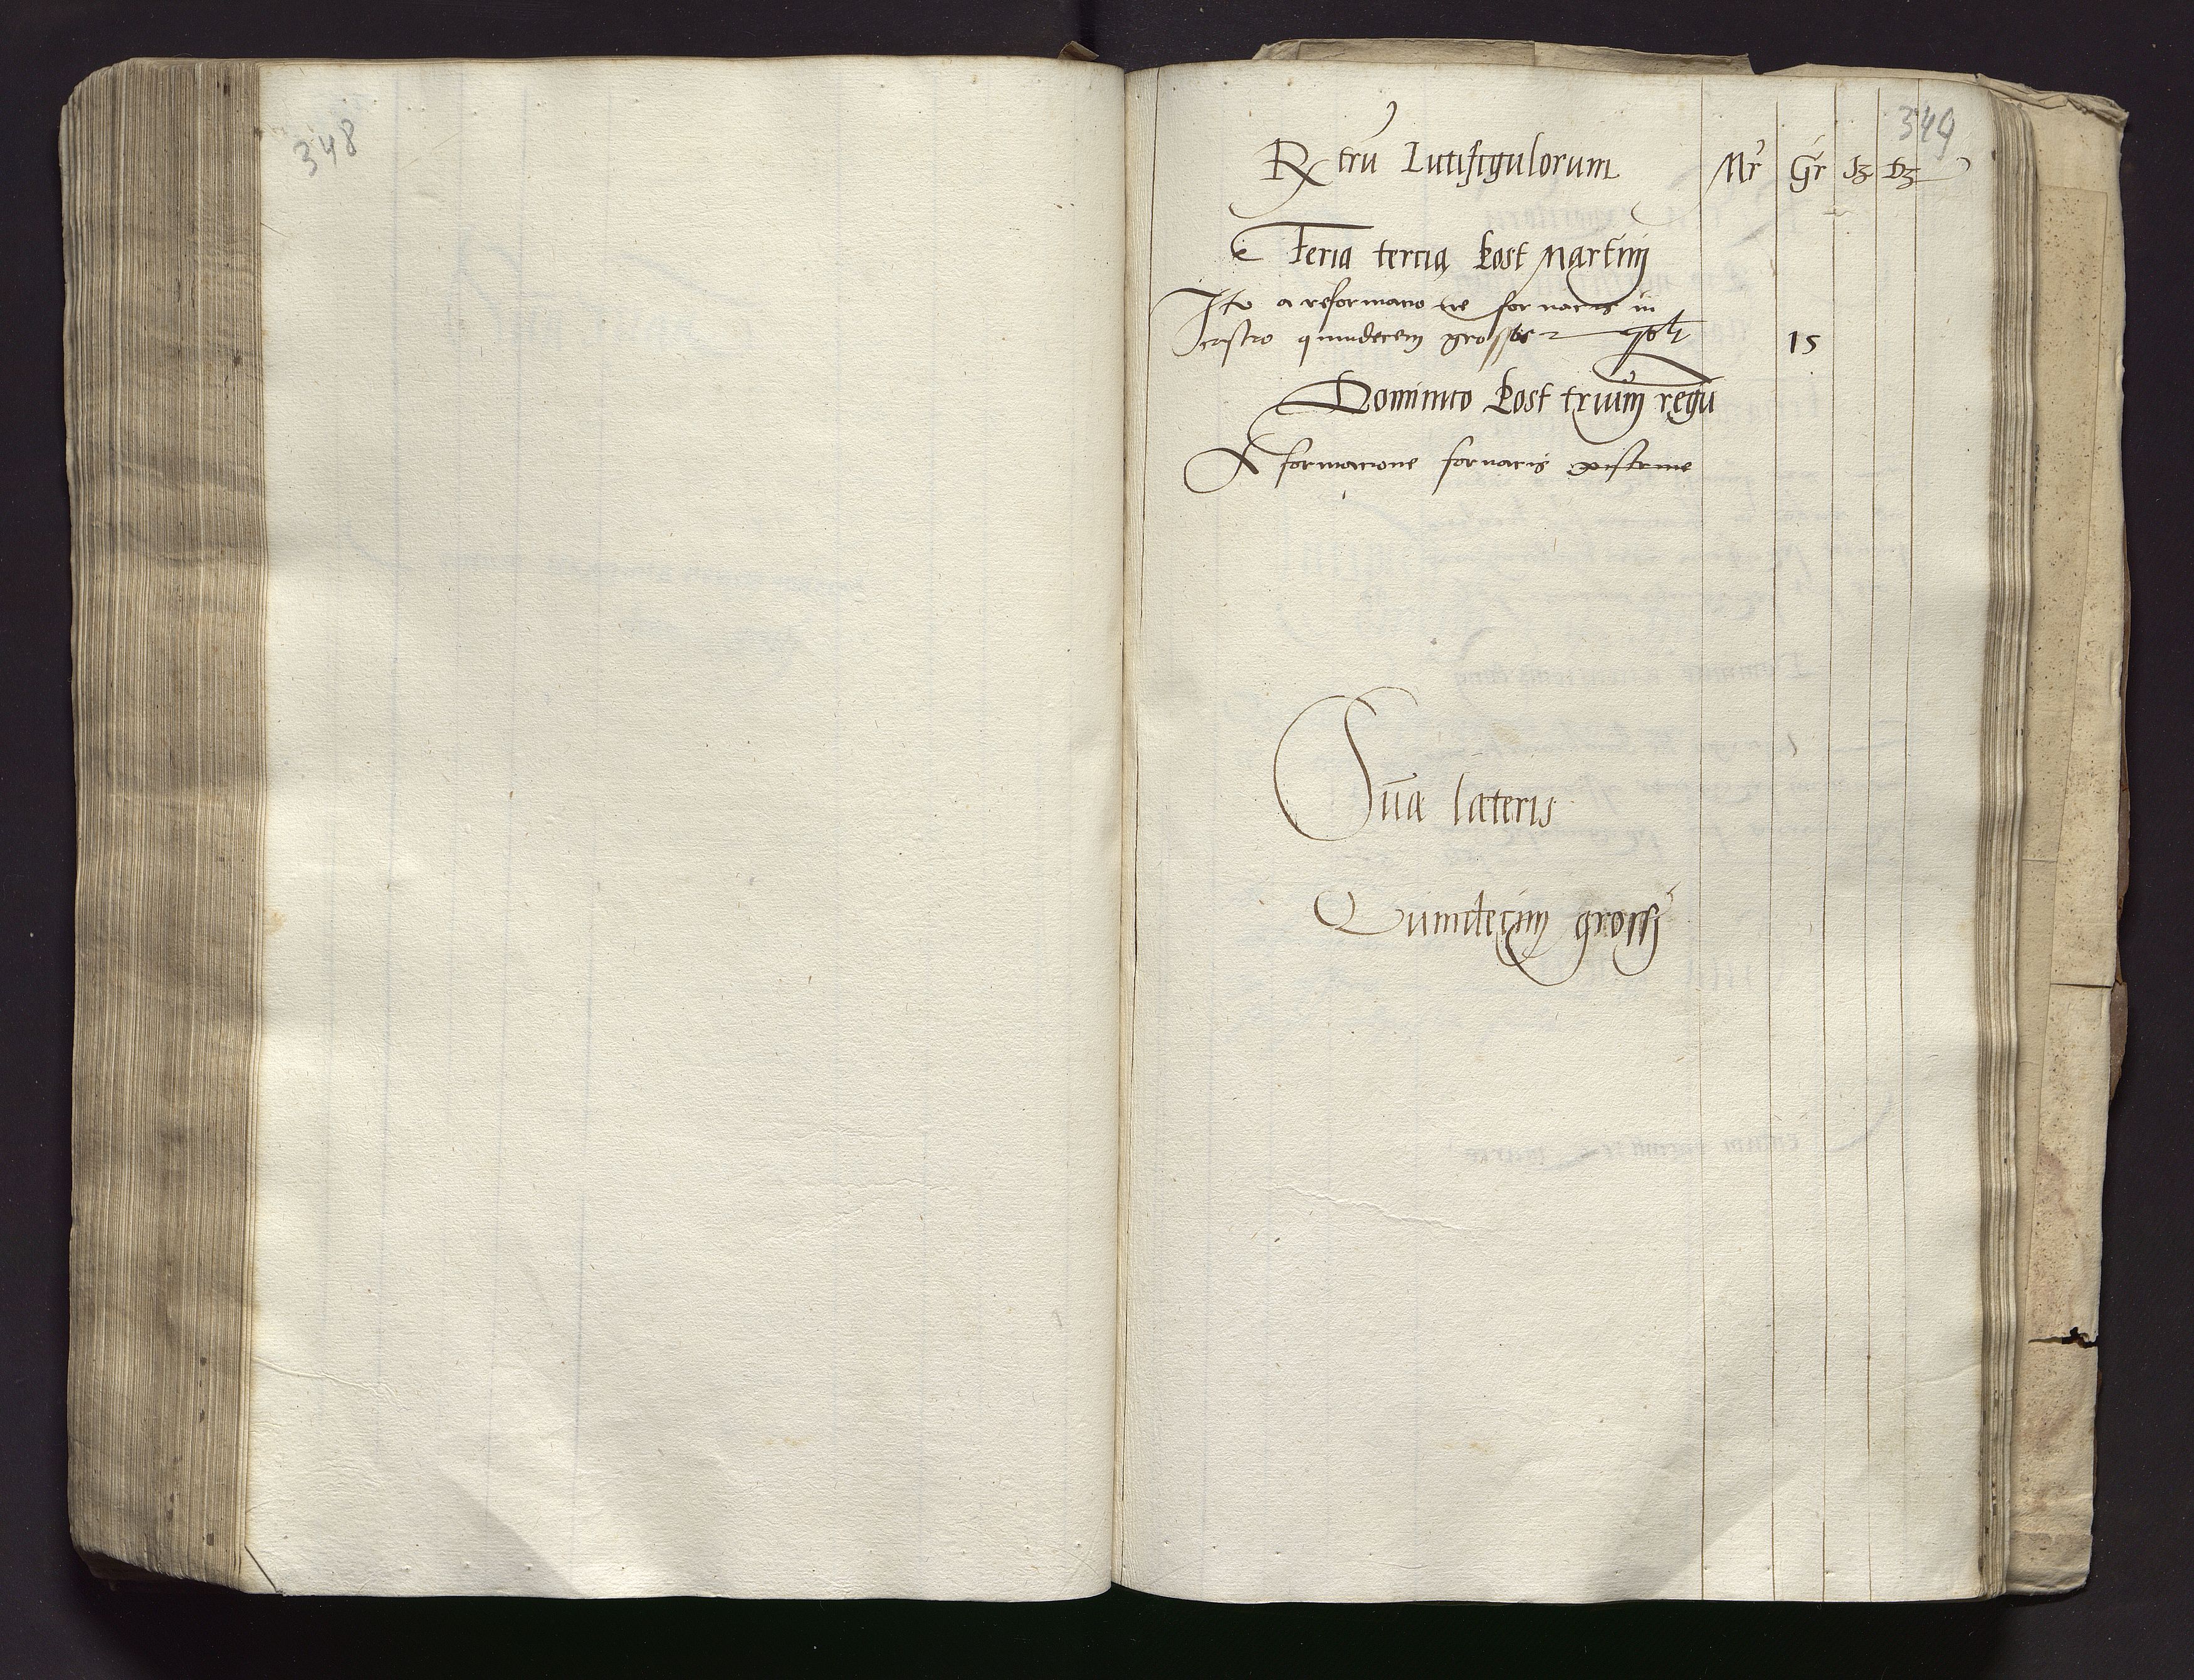 348
349
Rx trū Lutifigulorum Mr Gr
Feria tercia post Martinj
Ito a reformacione fornacis in
castro quindecem grosse 15
Dominico post trium regū
A formacione fornacis
Sūa lateris
Quindecim grossj